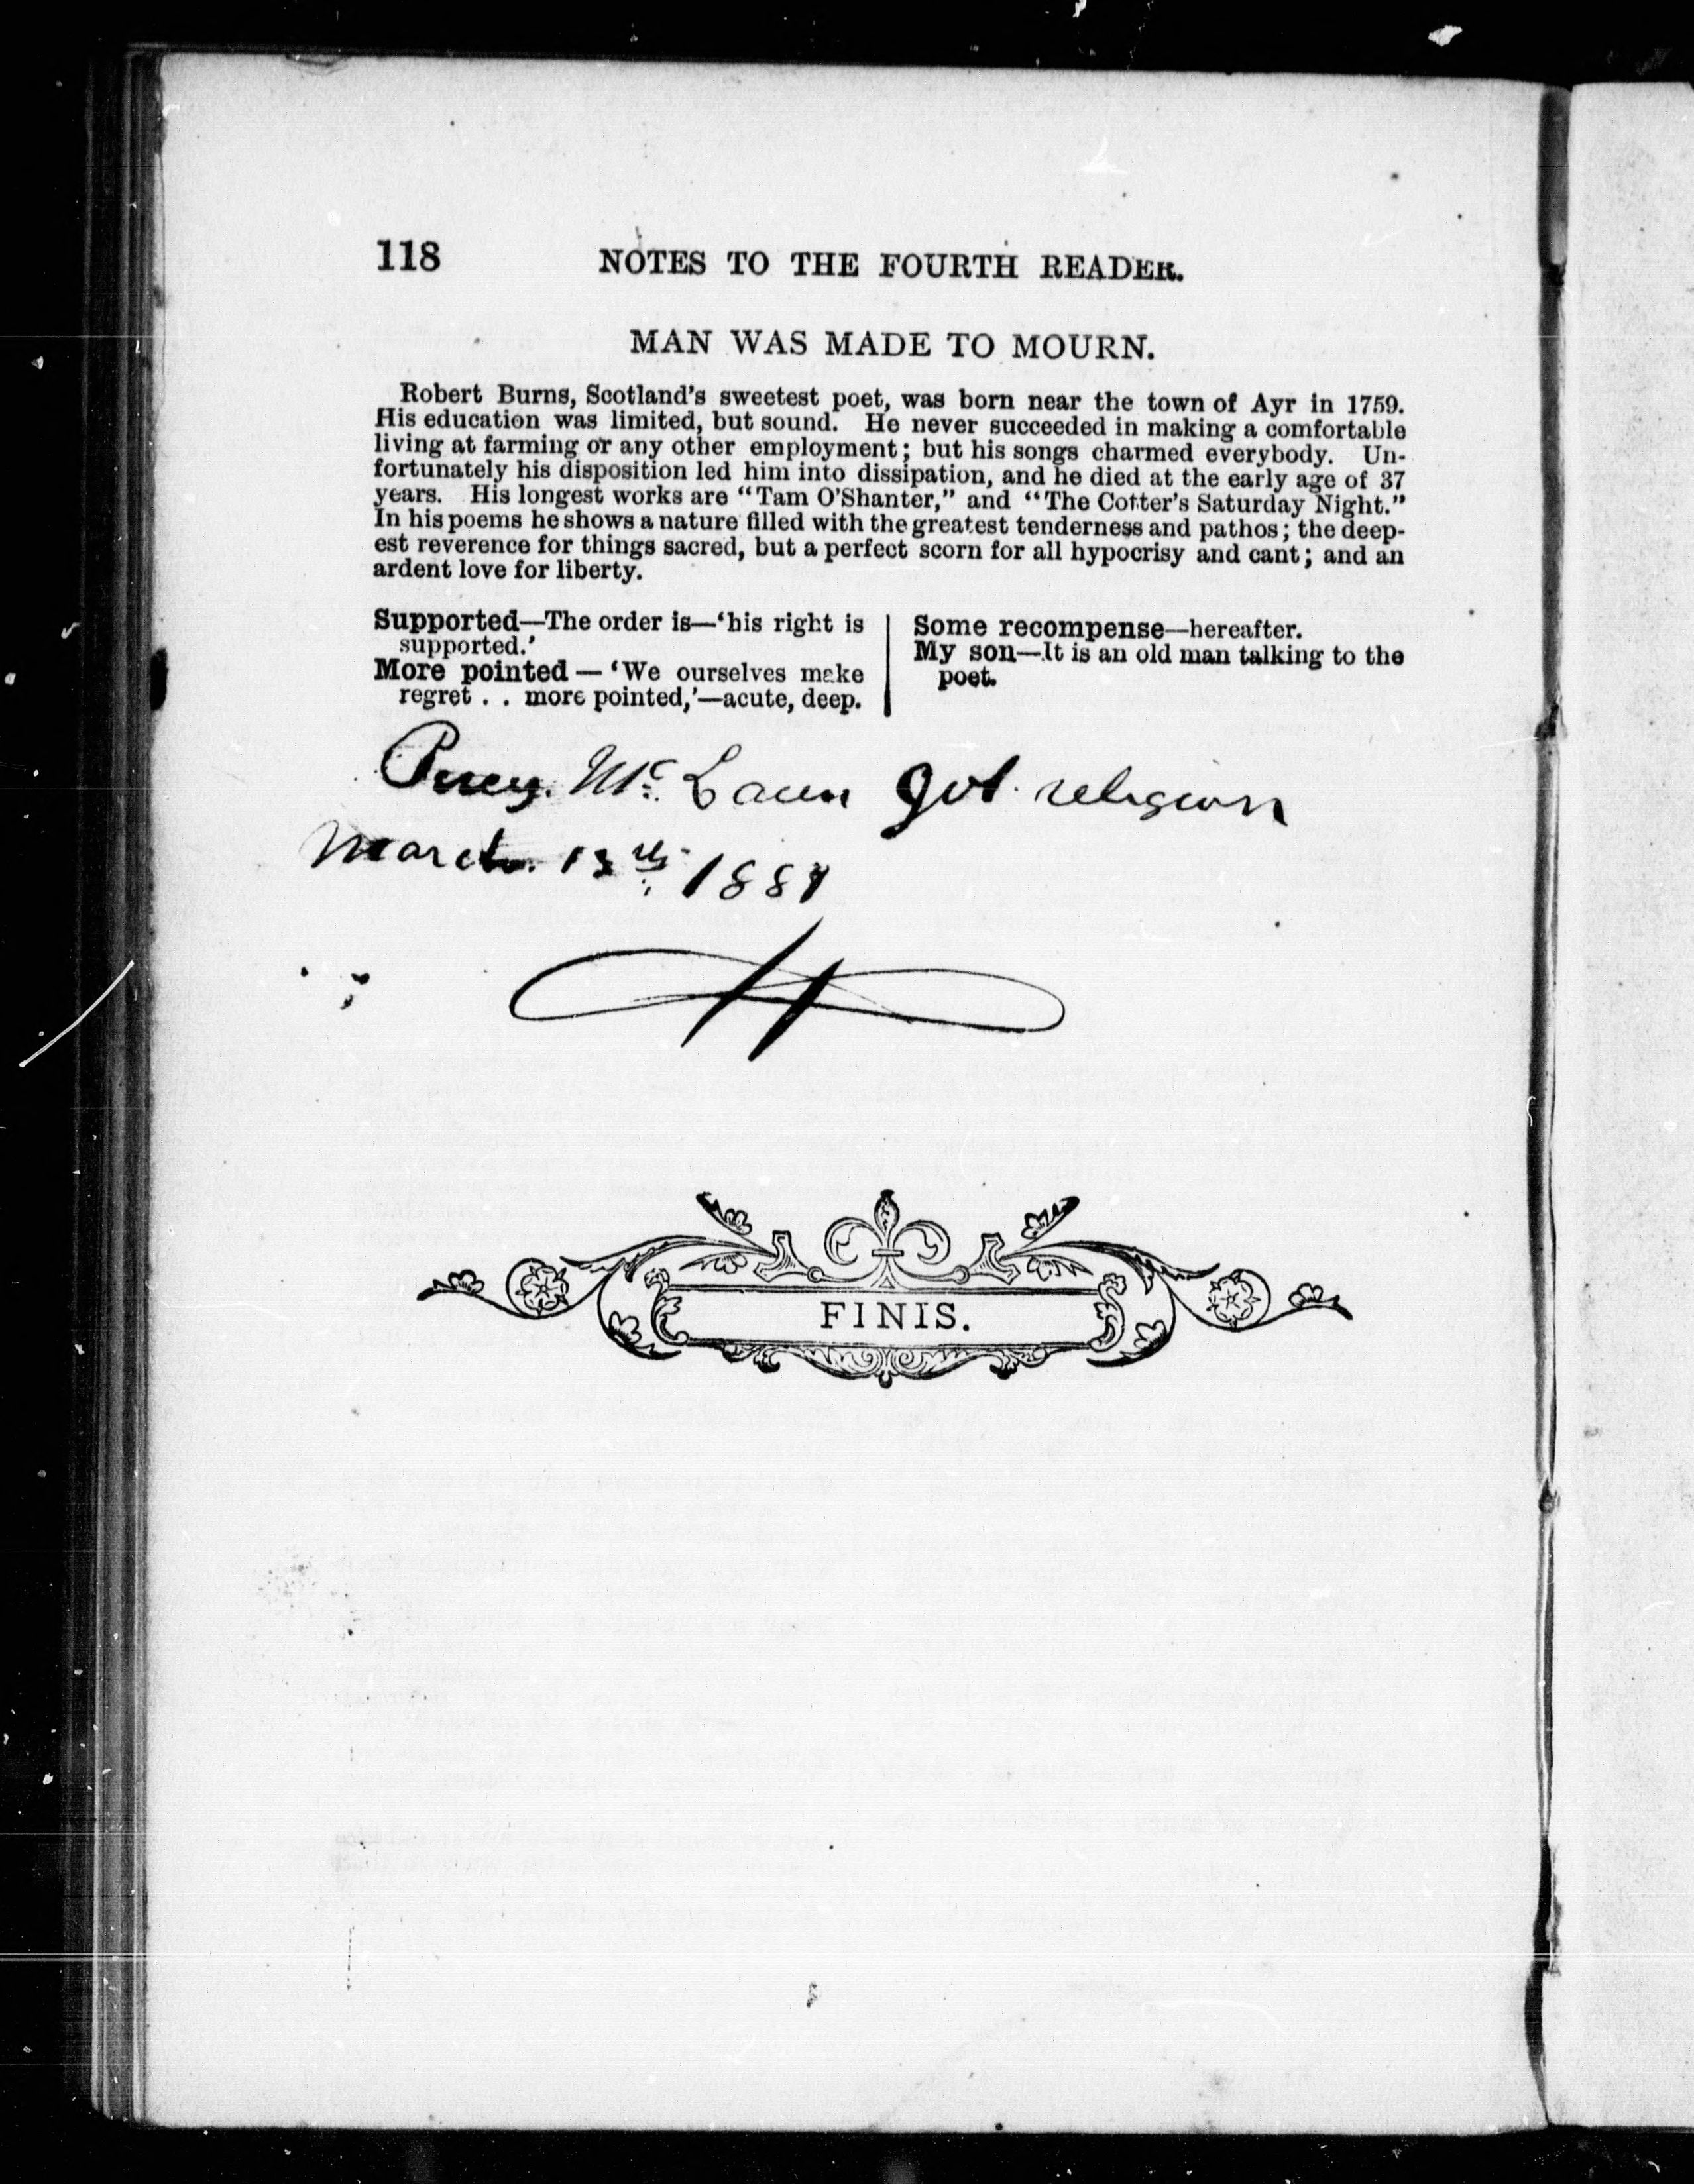 118
NOTES TO THE FOURTH READER.
MAN WAS MADE TO MOURN.
Robert Burns, Scotland's sweetest poet, was born near the town of Ayr in 1759.
His education was limited, but sound. He never succeeded in making a comfortable
living at farming or any other employment; but his songs charmed everybody. Un-
fortunately his disposition led him into dissipation, and he died at the early age of 37
years. His longest works are "Tam O'Shanter," and "The Cotter's Saturday Night."
In his poems he shows a nature filled with the greatest tenderness and pathos; the deep-
est reverence for things sacred, but a perfect scorn for all hypocrisy and cant; and an
ardent love for liberty.
Supported—The order is—'his right is
supported.'
More pointed — 'We ourselves make
regret . . more pointed,'—acute, deep.
Some recompense—hereafter.
My son—It is an old man talking to the
poet.
Mc. got religion
March. 13th 188
FINIS.